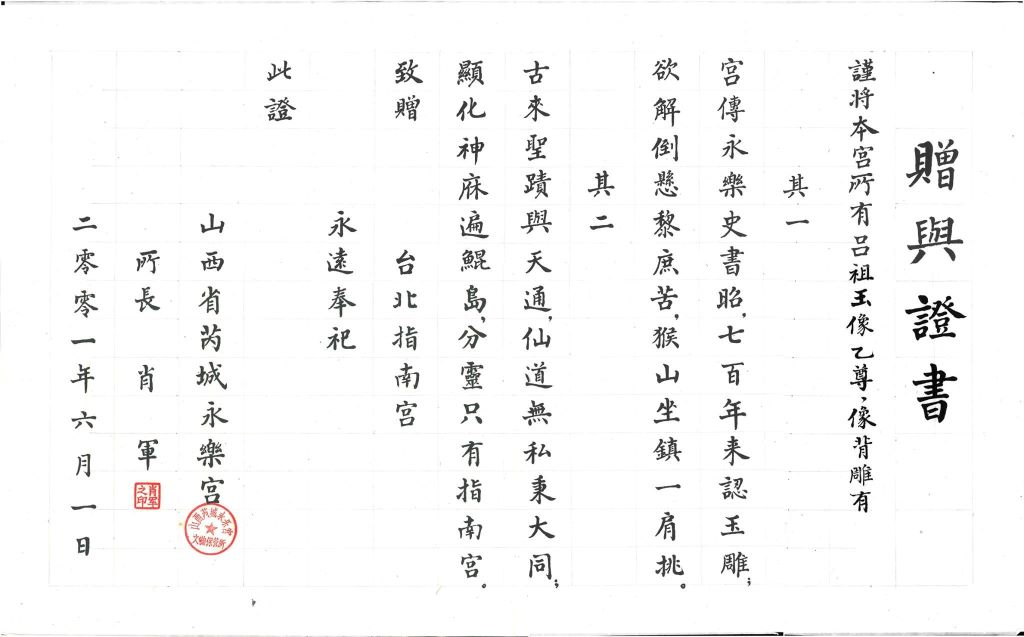 贈與證書
謹將本宮所有呂祖玉像乙尊，像背雕有
其一
宮傳永樂史書昭，七百年来認玉雕；
欲解倒懸黎庶苦，猴山坐鎮一肩挑。
其二
古來聖蹟與天通，仙道無私秉大同；
顯化神庥遍鯤島，分靈只有指南宮。
致贈 台北指南宮
永遠奉祀
此證
山西省芮城永樂宮
山西芮城永乐宫
文物保管所
所長 肖軍
肖军
之印
二零零一年六月一日